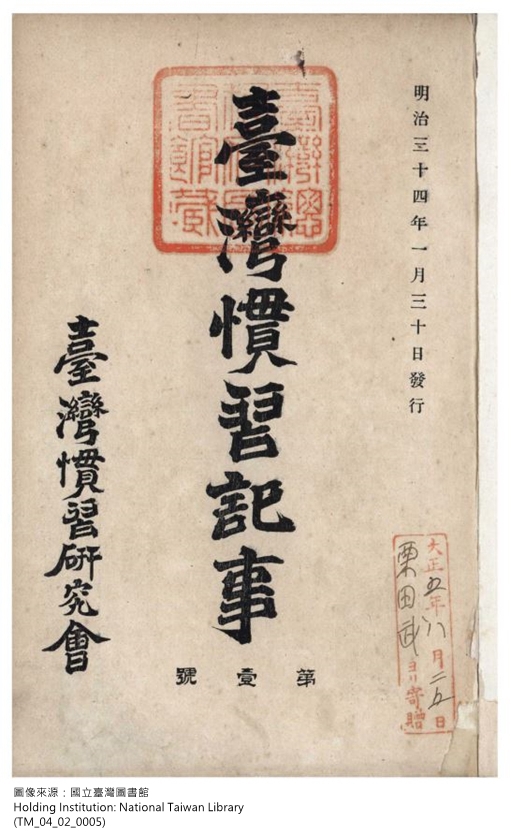 明治三十四年一月三十日發行
臺灣慣習記事
第壹號
臺灣慣習研究會
大正五年八月二五日
栗田武ヨリ寄贈
圖像來源：國立臺灣圖書館
Holding Institution: National Taiwan Library
(TM_04_02_0005)